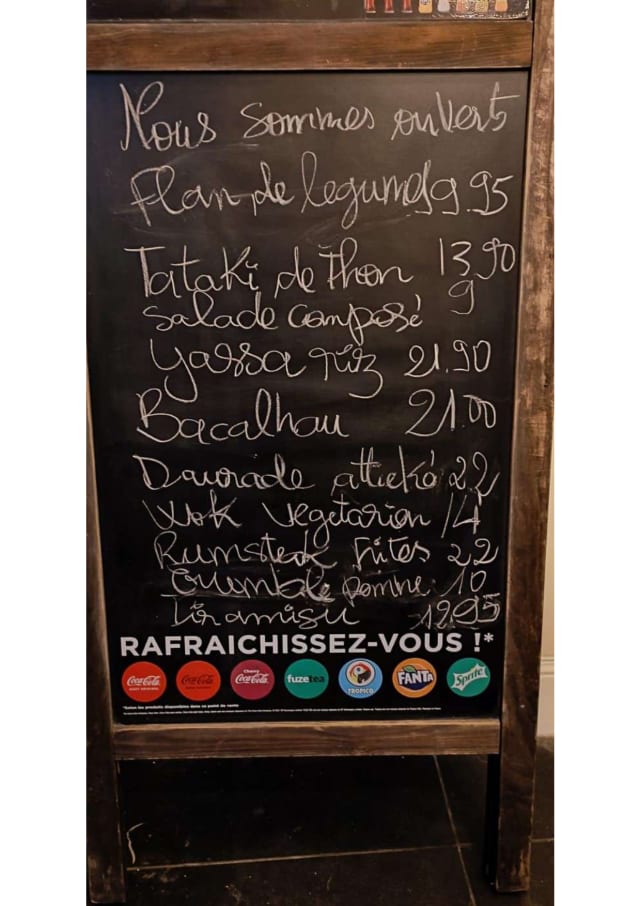 Nous sommes ouvert
Flan de legumes 9.95
Tataki de Thon 13.90
Salade composé 9
Yassa riz 21.90
Bacalhau 21.00
Daurade attieké 22
Wok Vegetarien 14
Rumsteak frites 22
Crumble pomme 10
Tiramisu 12.95
RAFRAICHISSEZ-VOUS !*
Coca-Cola Coca-Cola Cherry Coca-Cola fuzetea TROPICO FANTA Sprite
*Selon les produits disponibles dans ce point de vente